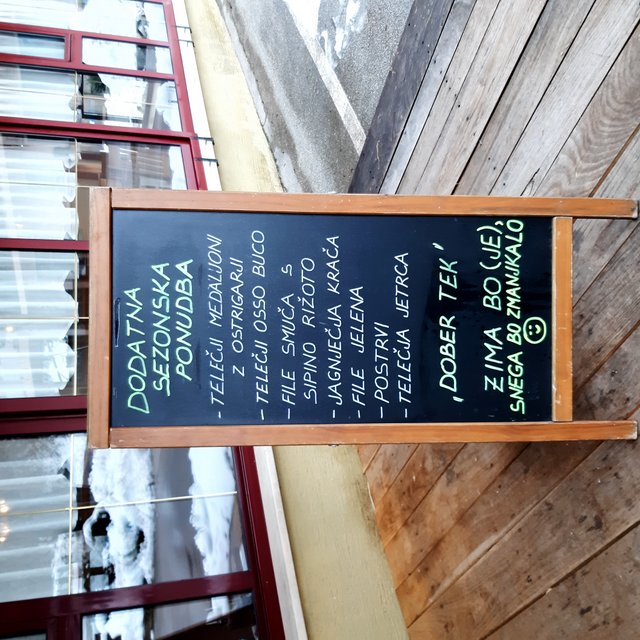 DODATNA
SEZONSKA
PONUDBA
- TELEČJI MEDALJONI
Z OSTRIGARJI
- TELEČJI OSSO BUCO
- FILE SMUČA S
SIPINO RIŽOTO
- JAGNJEČJA KRAČA
- FILE JELENA
- POSTRVI
- TELEČJA JETRCA
"DOBER TEK"
ZIMA BO (JE),
SNEGA BO ZMANJKALO